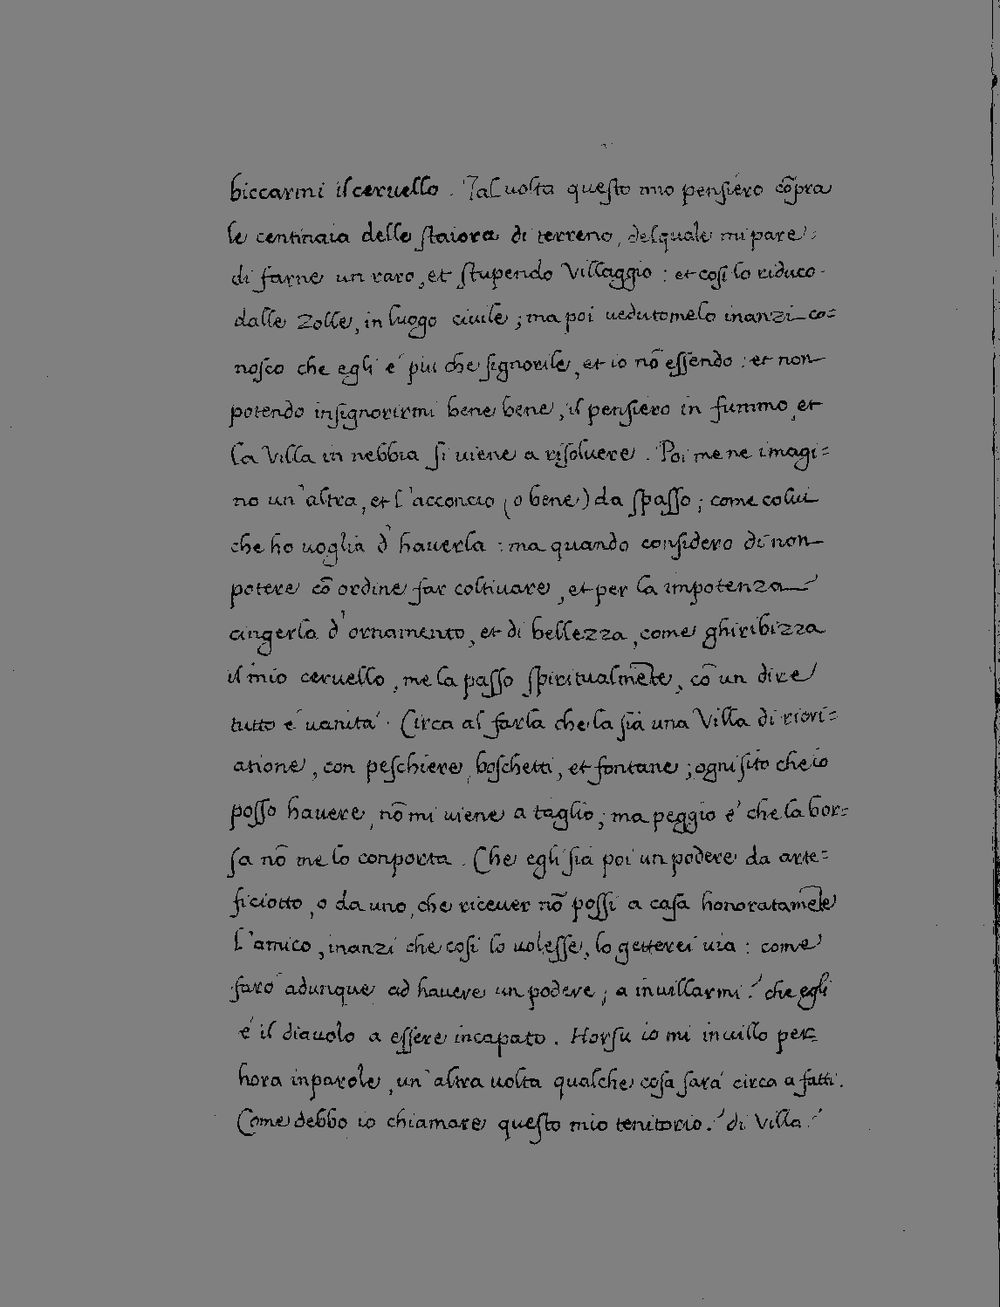 biccarmi il ceruello. Tal uolta questo mio pensiero cõpra
le centinaia delle staiora di terreno, del quale mi pare
di farne un raro, et stupendo Villaggio : et cosi lo riduco
dalle Zolle, in luogo ciuile ; ma poi uedutomelo inanzi co=
nosco che egli é piu che signorile, et io nõ essendo : et non
potendo insignorirmi bene bene, il pensiero in fummo, et
la Villa in nebbia si uiene a risoluere. Poi me ne imagi=
no un'altra, et l'acconcio (o bene) da spasso ; come colui
che ho uoglia d'hauerla : ma quando considero di non
potere cõ ordine far coltiuare, et per la impotenza
cingerla d'ornamento, et di bellezza, come ghiribizza
il mio ceruello, me la passo spiritualmẽte, cõ un dire
tutto é uanitá. Circa al farla che la sia una Villa di ricri=
atione, con peschiere, boschetti, et fontane ; ogni sito che io
posso hauere, nõ mi uiene a taglio ; ma peggio é che la bor=
sa nõ me lo conporta. Che egli sia poi un podere da arte=
ficiotto, o da uno, che riceuer nõ possi a casa honoratamẽte
l'amico, inanzi che cosi lo uolesse, lo getterei uia : come
faró adunque ad hauere un podere ; a inuillarmi ? che egli
é il diauolo a essere incapato. Horsu io mi inuillo per
hora inparole, un'altra uolta qualche cosa sará circa a fatti.
Come debbo io chiamare questo mio tenitorio ? di Villa ?